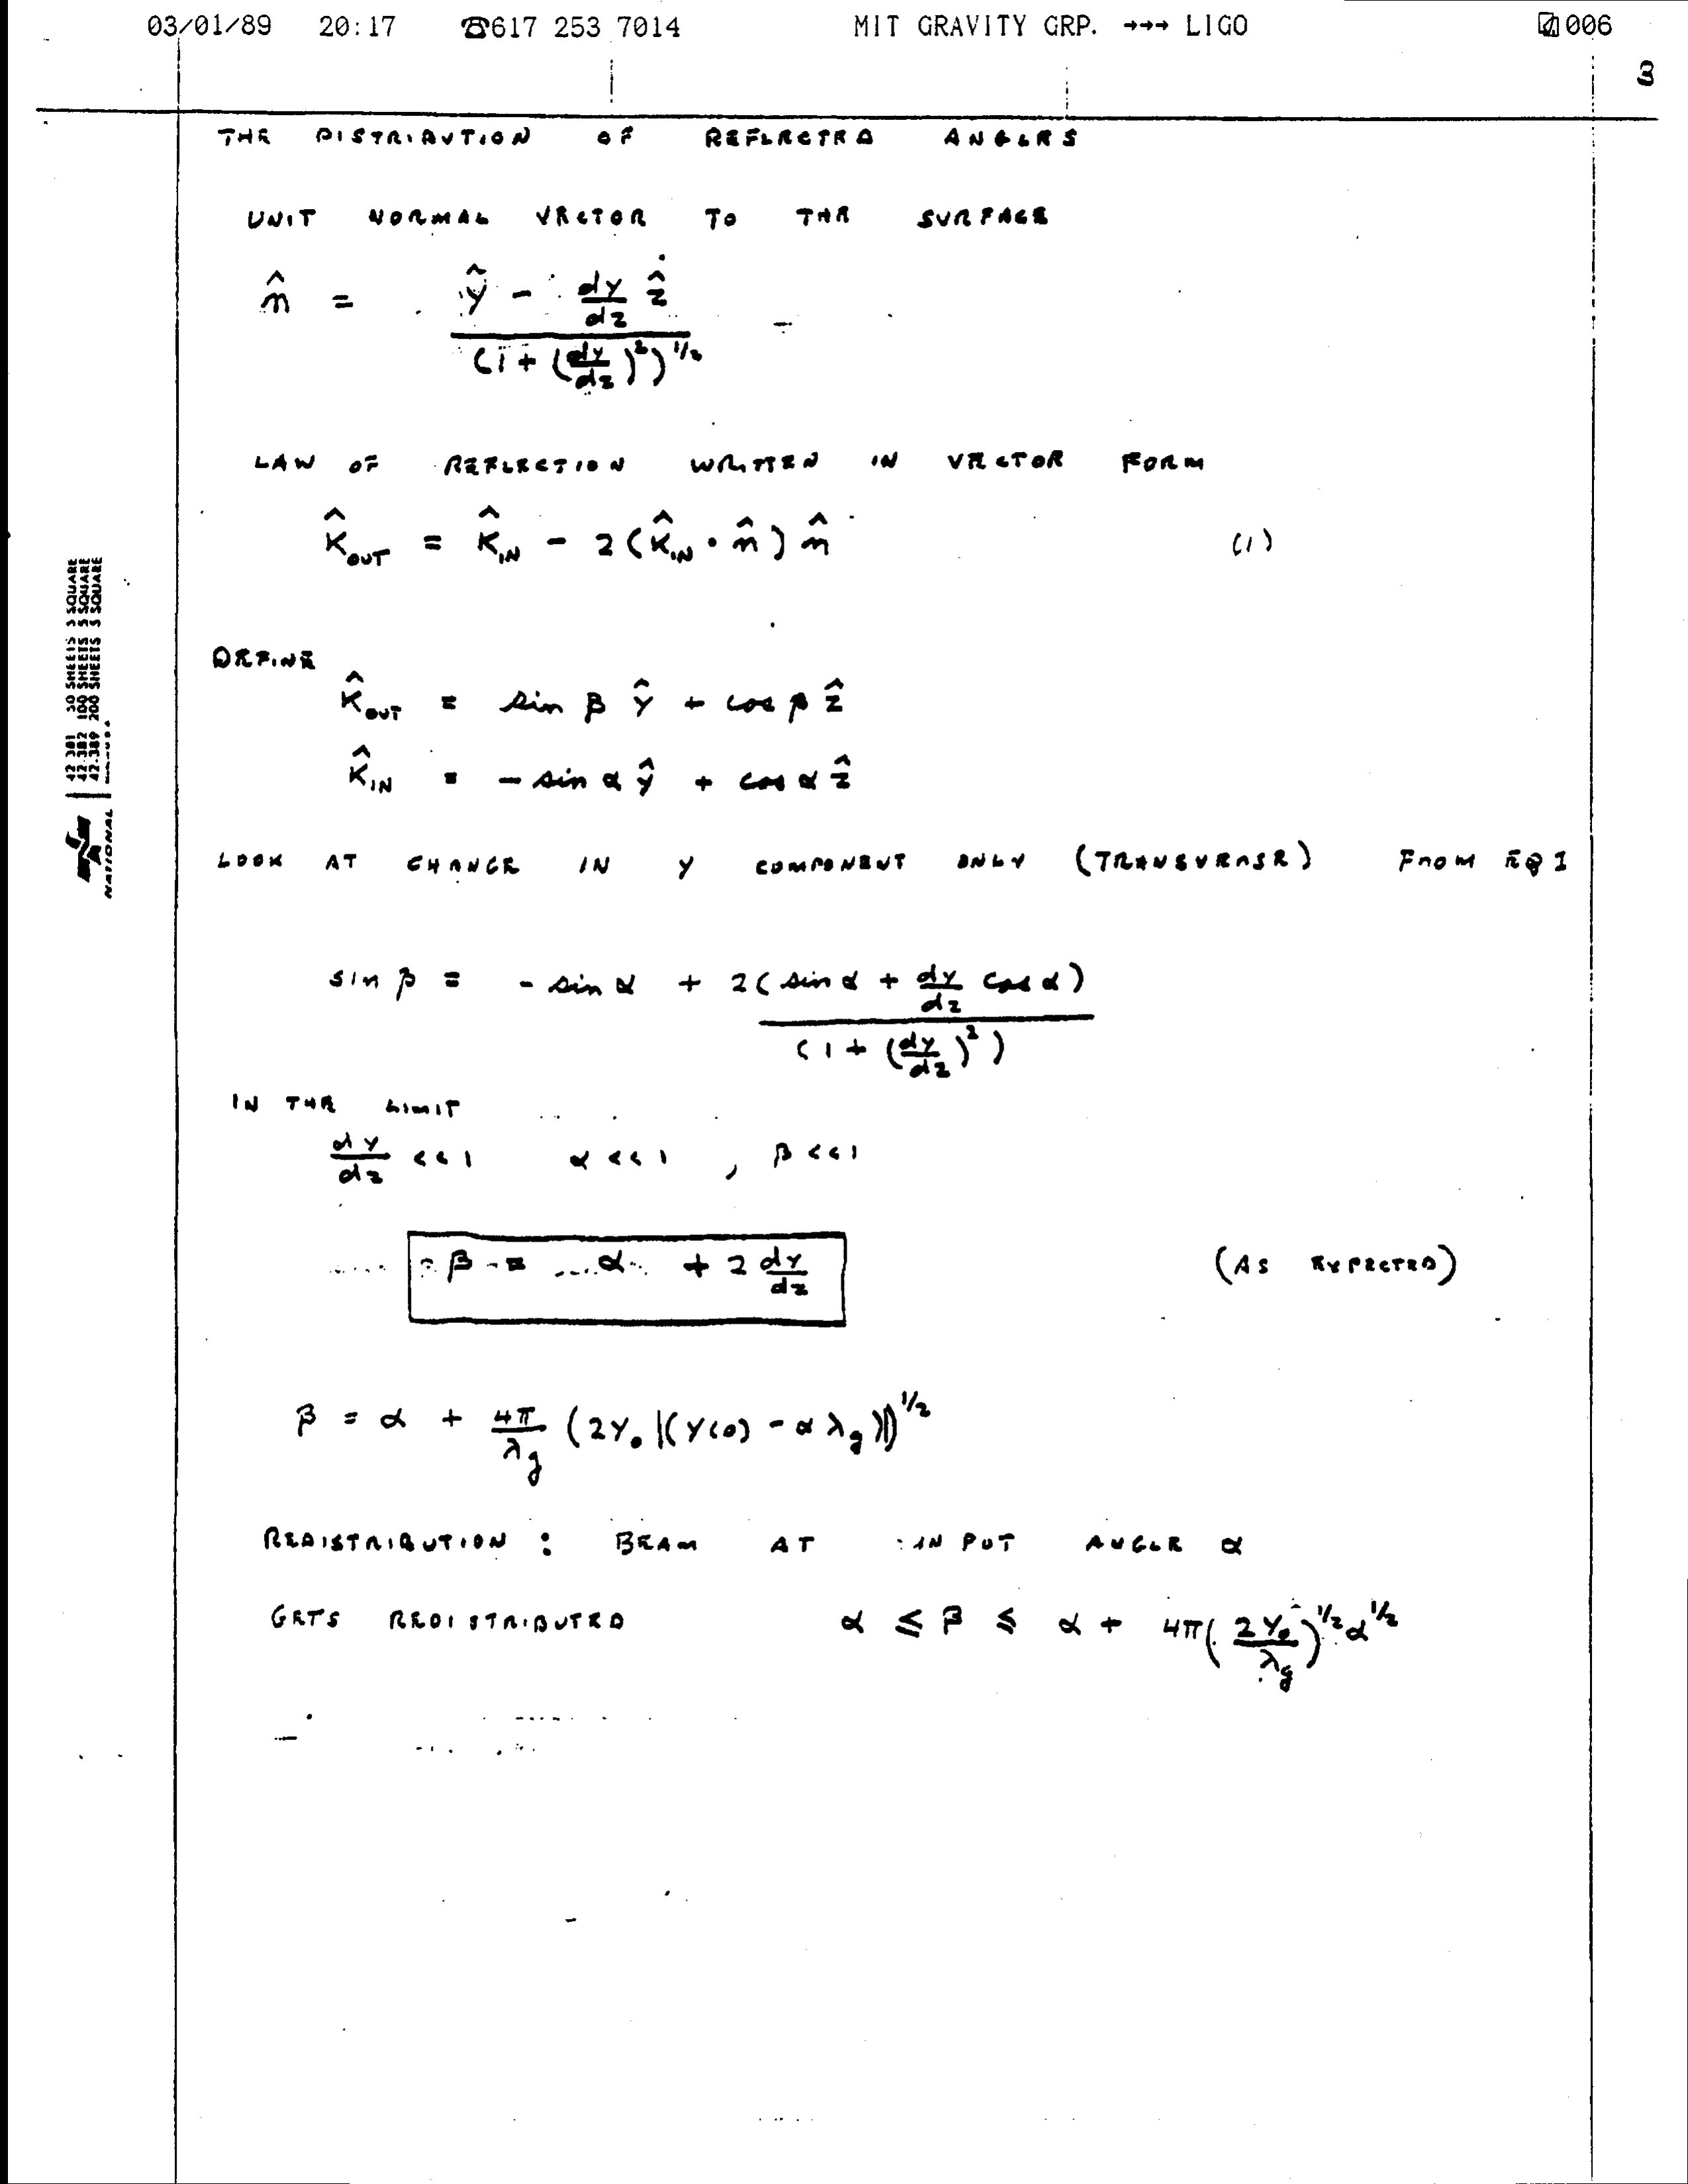 03/01/89 20:17 ☎617 253 7014 MIT GRAVITY GRP. →→→ LIGO 006
3
THE DISTRIBUTION OF REFLECTED ANGLES
UNIT NORMAL VECTOR TO THE SURFACE
n̂ = (ŷ - dy/dz ẑ) / (1 + (dy/dz)²)^1/2
LAW OF REFLECTION WRITTEN IN VECTOR FORM
K̂_OUT = K̂_IN - 2(K̂_IN · n̂) n̂ (1)
DEFINE
K̂_OUT = sin β ŷ + cos β ẑ
K̂_IN = - sin α ŷ + cos α ẑ
LOOK AT CHANGE IN Y COMPONENT ONLY (TRANSVERSE) FROM EQ 1
sin β = - sin α + 2(sin α + dy/dz cos α) / (1 + (dy/dz)²)
IN THE LIMIT
dy/dz << 1 α << 1 , β << 1
β = α + 2 dy/dz (AS EXPECTED)
β = α + 4π/λg (2Y₀ |(Y(0) - α λg)|)^1/2
REDISTRIBUTION : BEAM AT INPUT ANGLE α
GETS REDISTRIBUTED α ≤ β ≤ α + 4π(2Y₀/λg)^1/2 α^1/2
42 381 50 SHEETS 5 SQUARE
42 382 100 SHEETS 5 SQUARE
42 389 200 SHEETS 5 SQUARE
NATIONAL